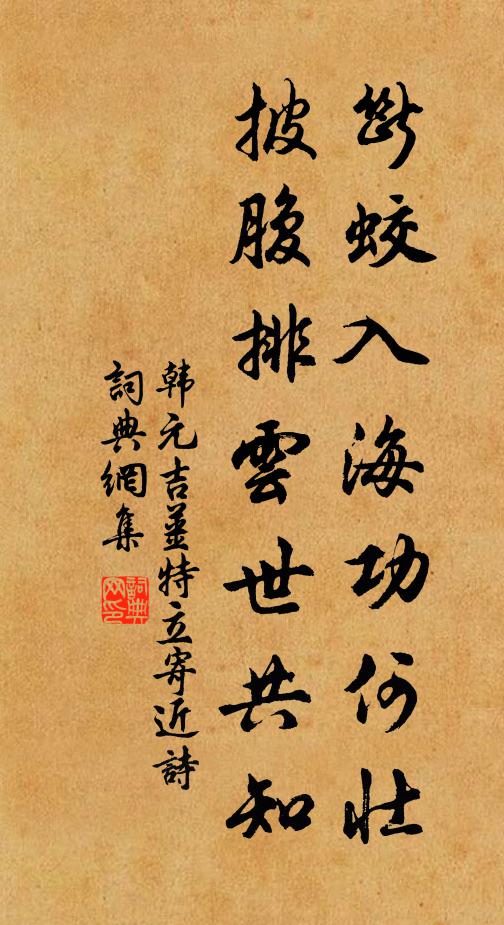 斷蛟入海功何壯
披腹排雲世共知
韩元吉薑特立寄近詩
詞典網集
詞典網印